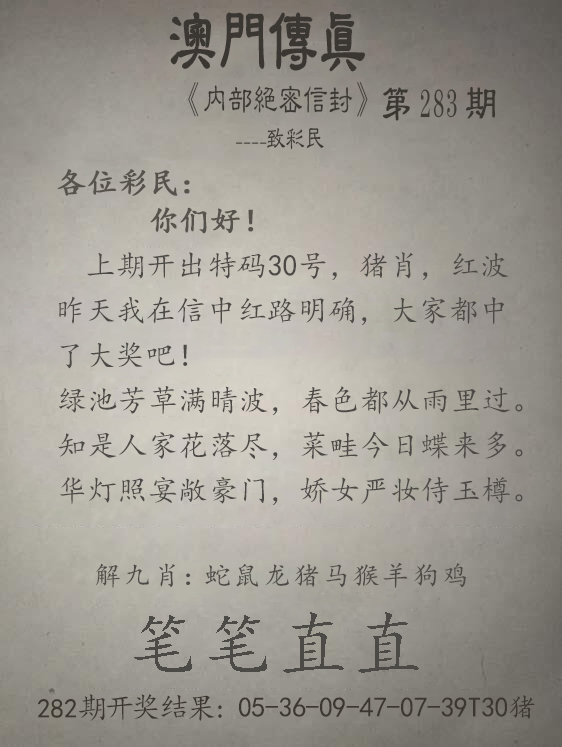 澳門傳眞
《内部絕密信封》第283期
----致彩民
各位彩民：
你们好！
上期开出特码30号，猪肖，红波
昨天我在信中红路明确，大家都中
了大奖吧！
绿池芳草满晴波，春色都从雨里过。
知是人家花落尽，菜畦今日蝶来多。
华灯照宴敞豪门，娇女严妆侍玉樽。
解九肖：蛇鼠龙猪马猴羊狗鸡
笔笔直直
282期开奖结果：05-36-09-47-07-39T30猪